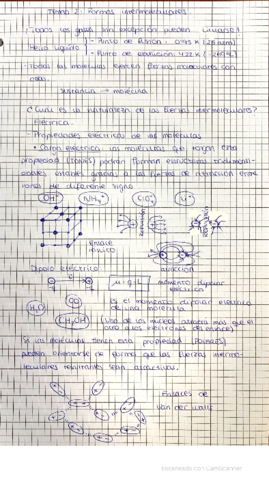 Tema 2. Fuerzas intermoleculares
¿Todos los gases sin excepción pueden licuarse?
Helio líquido - Punto de fusión: 0.95 K (26 atm)
- Punto de ebullición: 4.22 K
Todas las moléculas ejercen fuerzas moleculares con
otras.
Sustancia → molécula
¿Cuál es la naturaleza de las fuerzas intermoleculares?
Eléctrica
- Propiedades eléctricas de las moléculas
• Carga eléctrica: las moléculas que tengan esta
propiedad (IONES) podrán formar estructuras
estables gracias a las fuerzas de atracción entre
iones de diferente signo
OH⁻ NH₄⁺ ClO₄⁻ Li⁺
Enlace
iónico
Repulsión
Repulsión
atracción
Dipolo eléctrico
μ = q · L momento dipolar
eléctrico
H₂O CO Es el momento dipolar eléctrico
de una molécula
CH₃OH (uno de los núcleos atraería más que el
otro a los electrones del enlace)
Si las moléculas tienen esta propiedad (POLARES)
pueden orientarse de forma que las fuerzas intermo-
leculares resultantes sean atractivas.
Enlaces de
Van der Waals
Escaneado con CamScanner